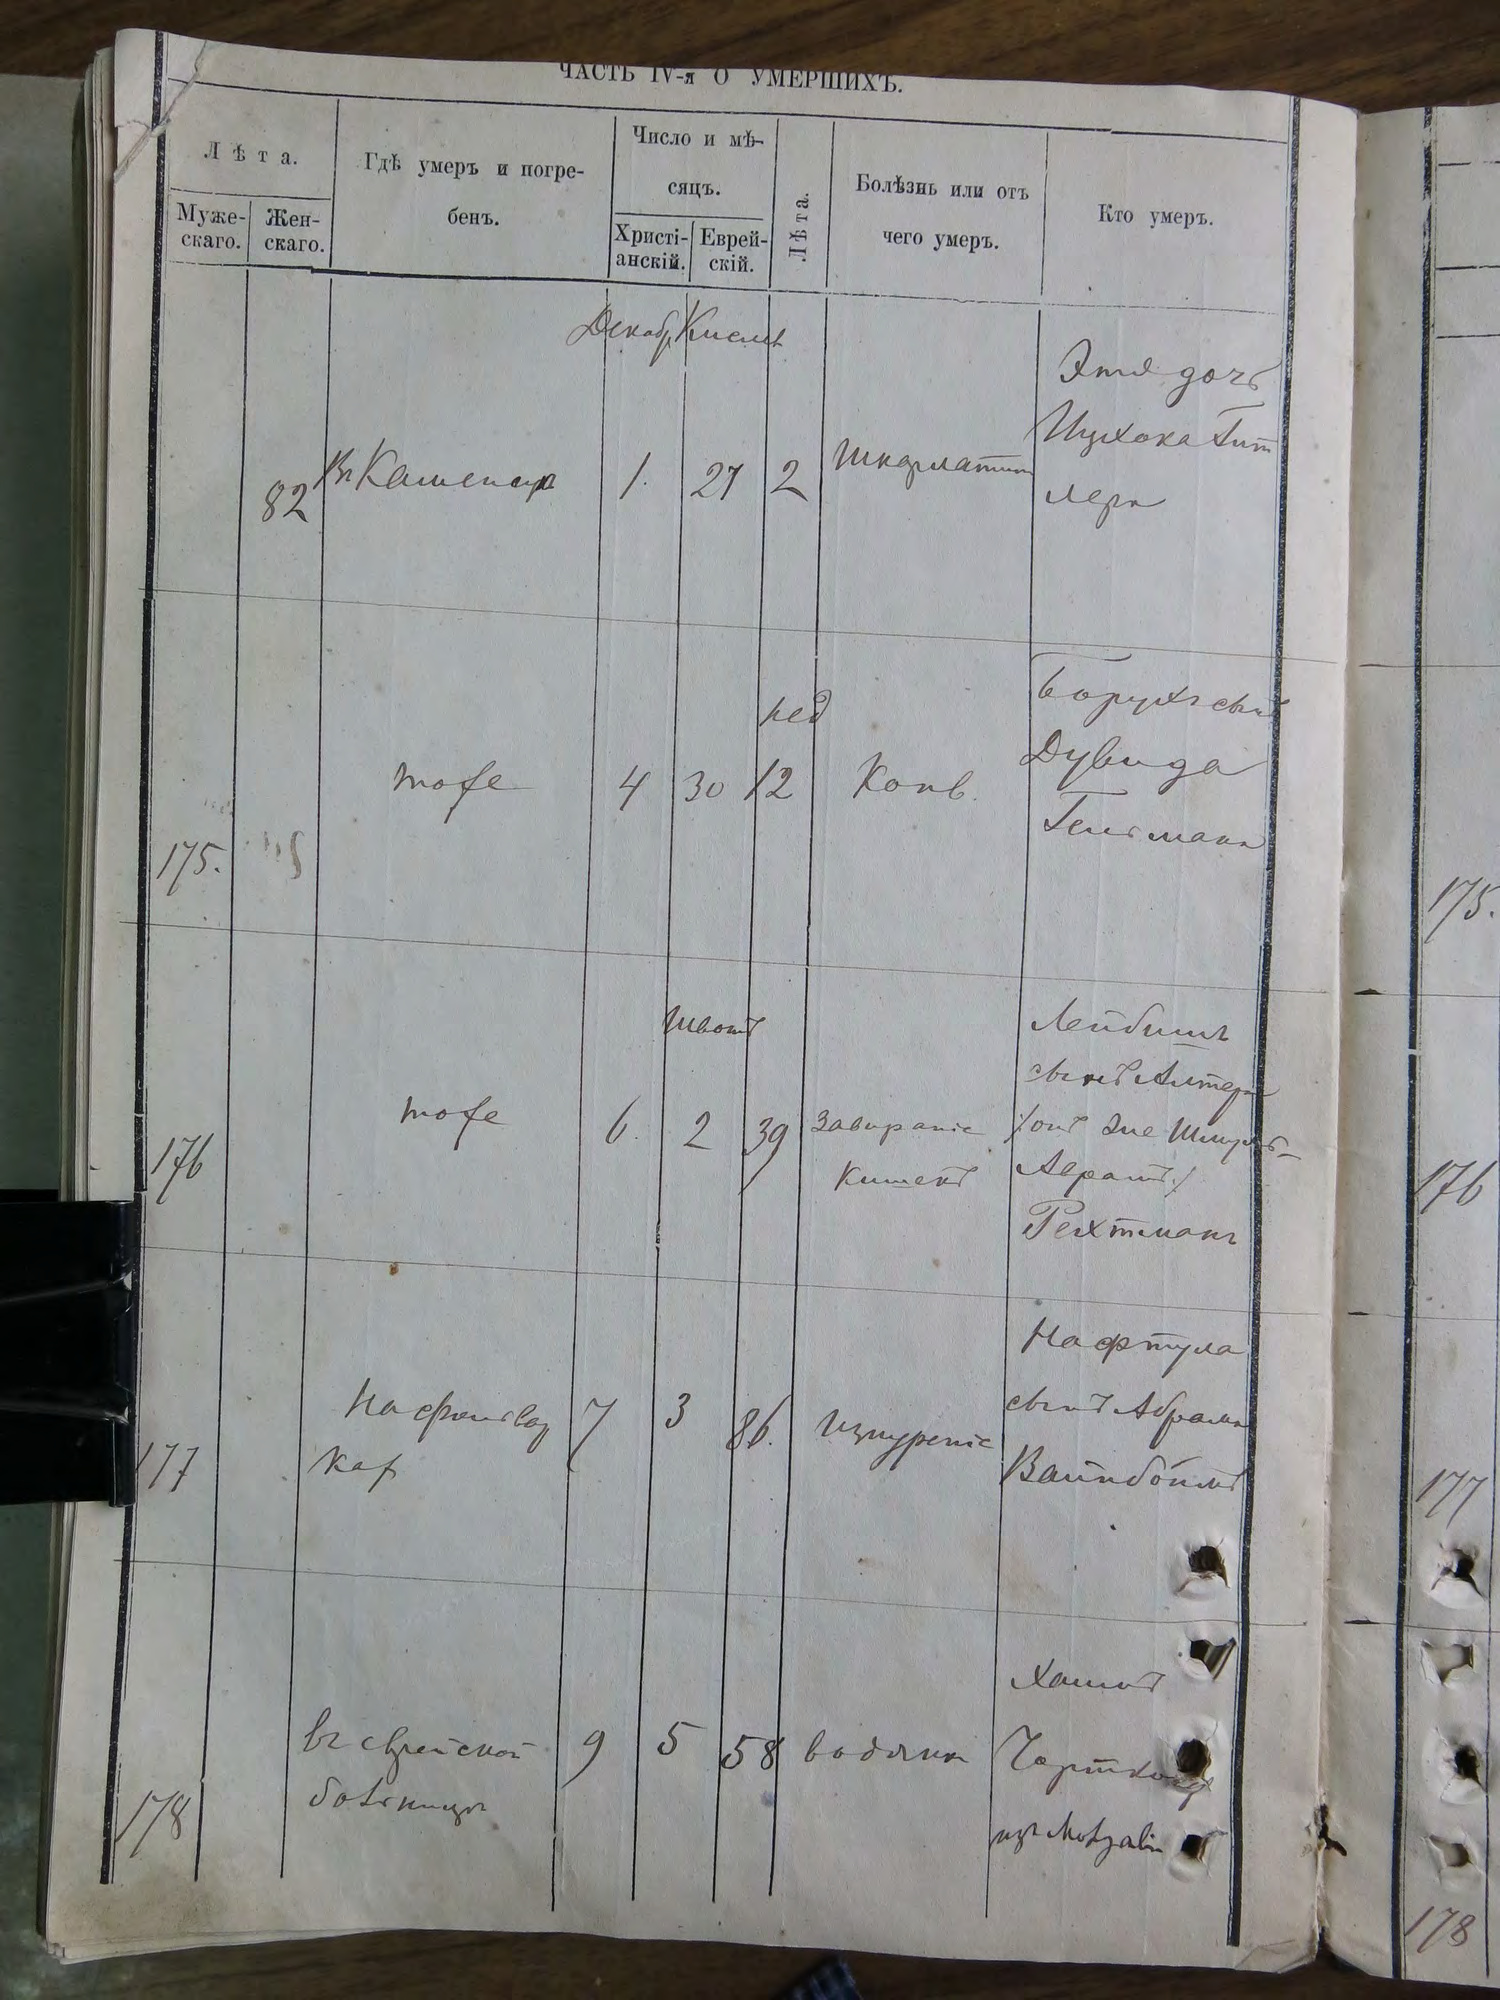 ЧАСТЬ IV-я О УМЕРШИХЪ.
Лѣта.
Муже-
скаго.
Жен-
скаго.
Гдѣ умеръ и погре-
бенъ.
Число и мѣ-
сяцъ.
Христі-
анскій.
Еврей-
скій.
Лѣта.
Болѣзнь или отъ
чего умеръ.
Кто умеръ.
Декабр Кислв
82 Въ Каменцѣ 1. 27 2 шкарлатин
Этя дочь
Ицхока Гит
лера
175. тоже 4 30
нед
12 Конв.
Борухъ сынъ
Дувида
Гельмана
Шватъ
176 тоже 6. 2 39
завираніе
кишекъ
Лейбишъ
сынъ Алтера
/онъ же Шмуль-
Абрамъ/
Рехтманъ
177
На фольвар
ках
7 3 86. изнуреніе
Нафтула
сынъ Абрама
Вайнбоймъ
178
въ еврейской
больницѣ
9 5 58 водянка
Хаимъ
изъ
175.
176
177
178